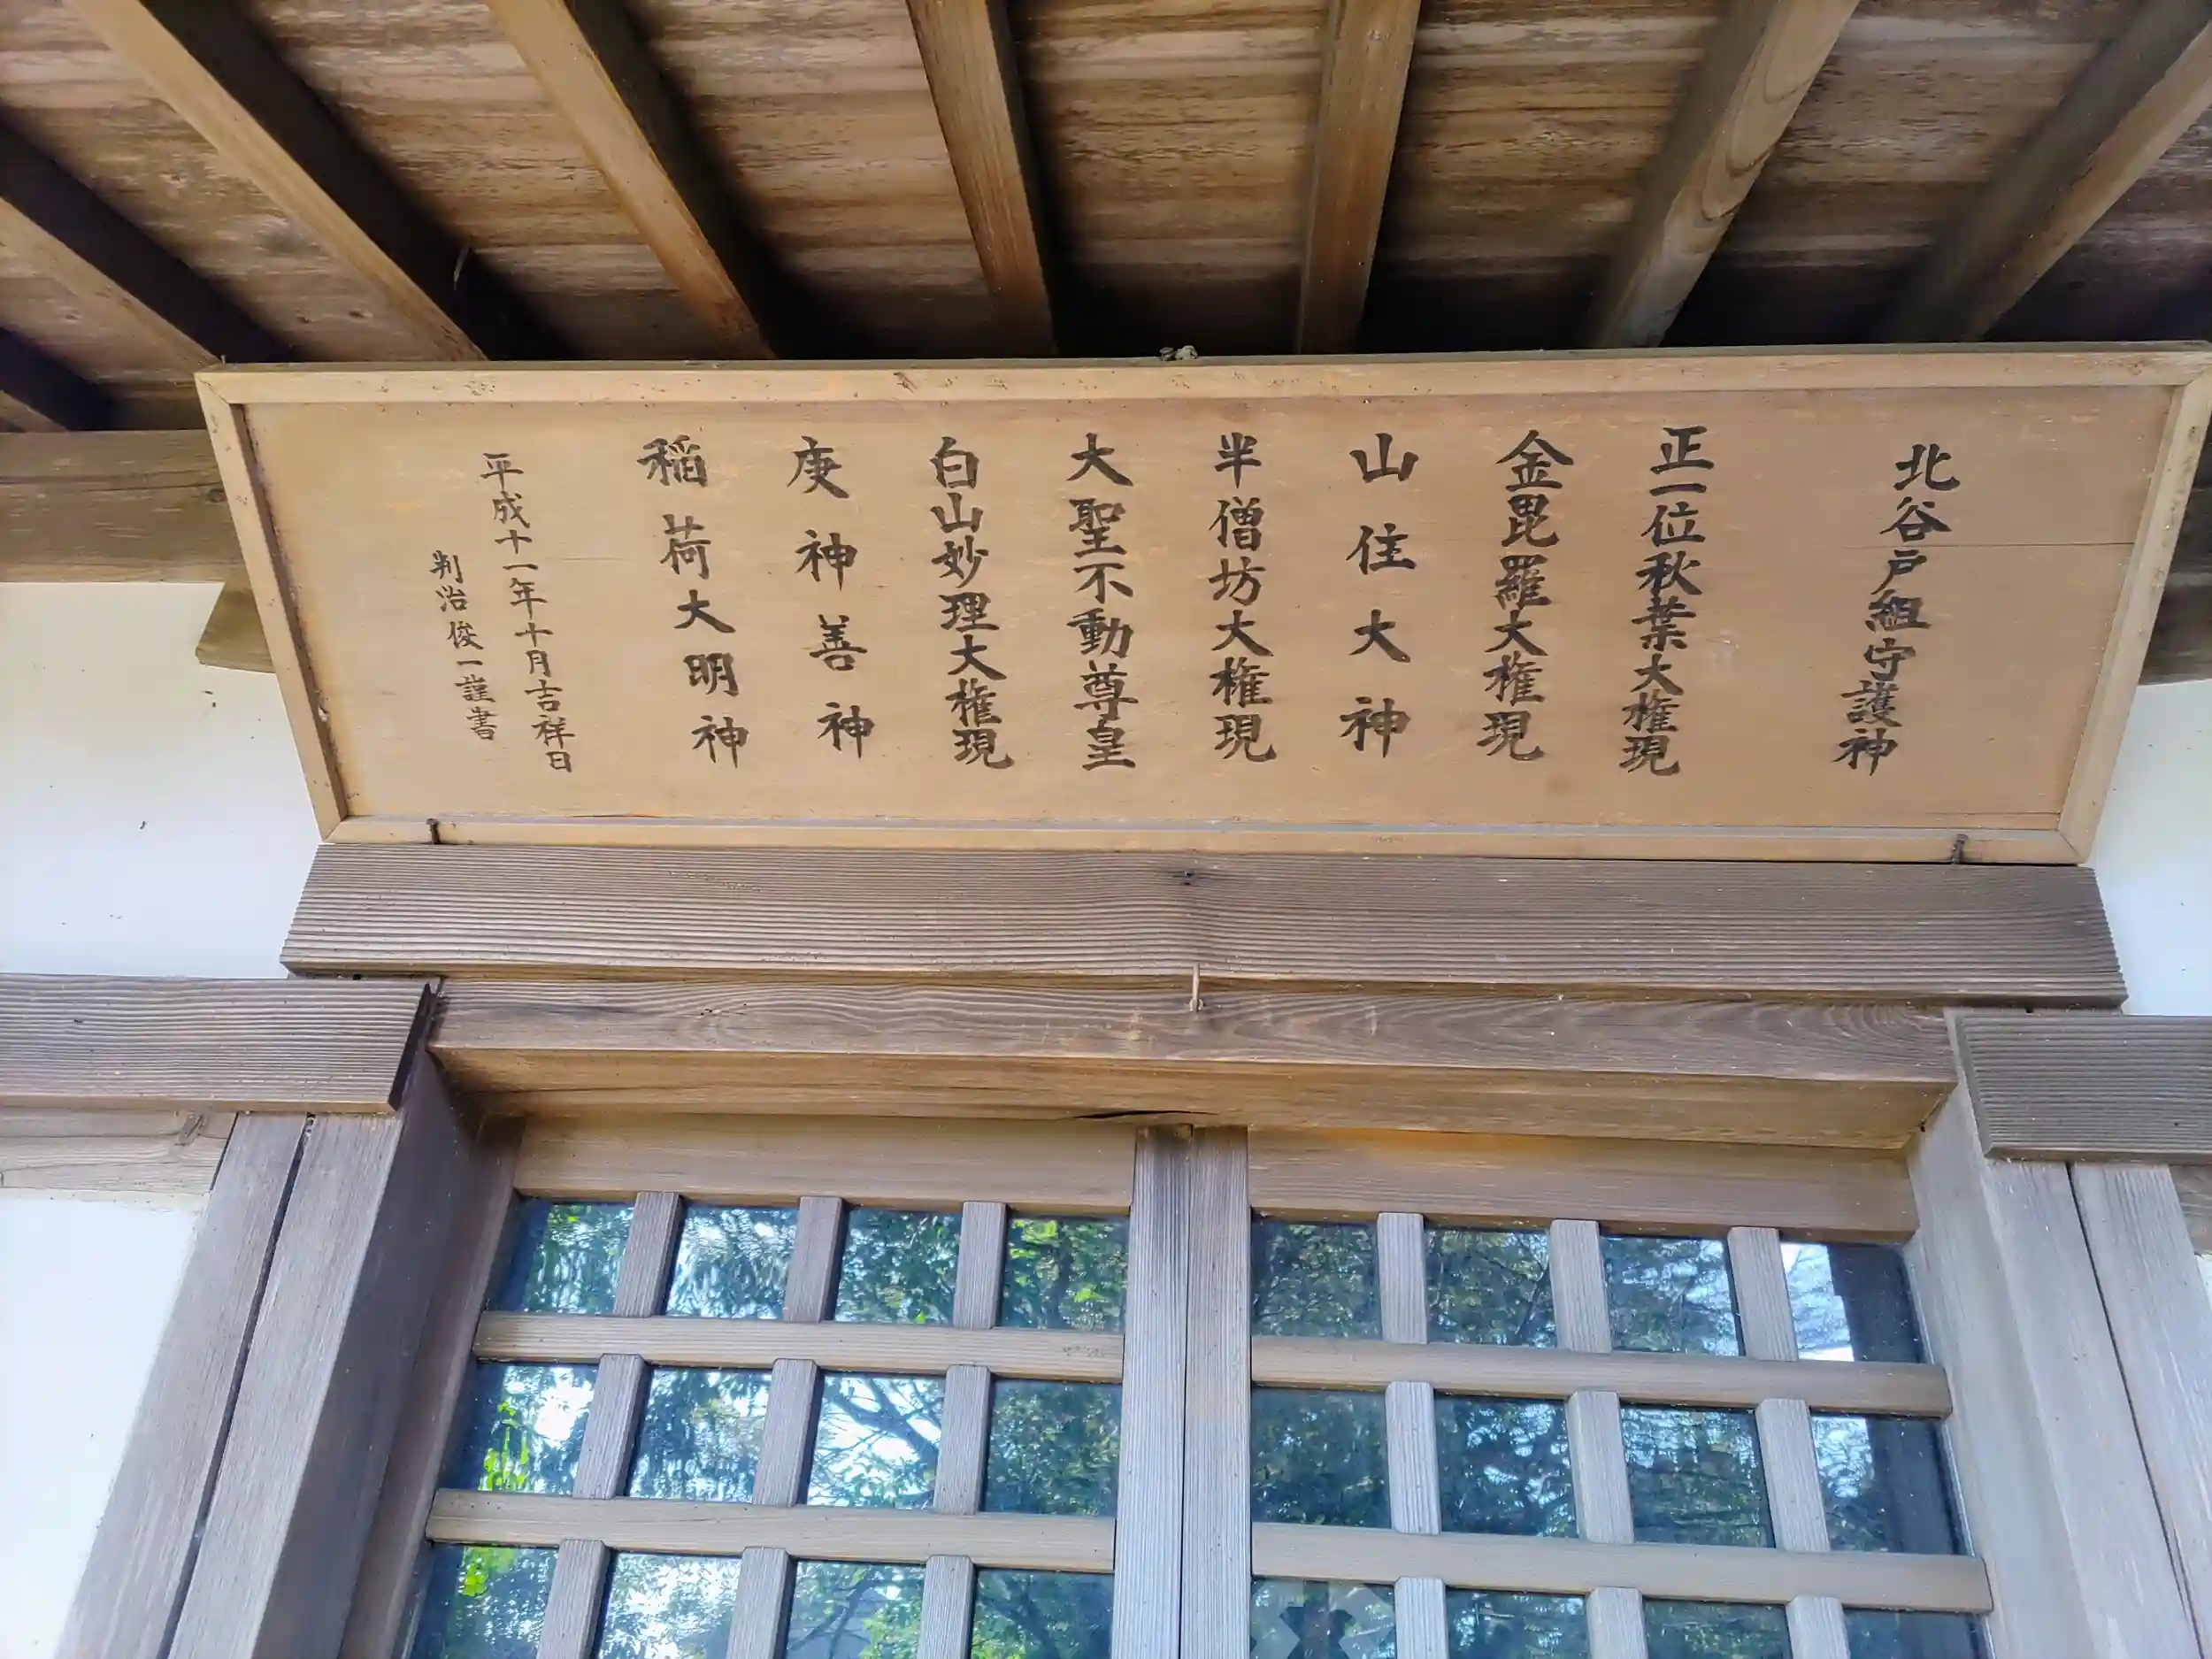 北谷戸組守護神
正一位秋葉大権現
金毘羅大権現
山住大神
半僧坊大権現
大聖不動尊皇
白山妙理大権現
庚神善神
稲荷大明神
平成十一年十月吉祥日
判治俊一謹書